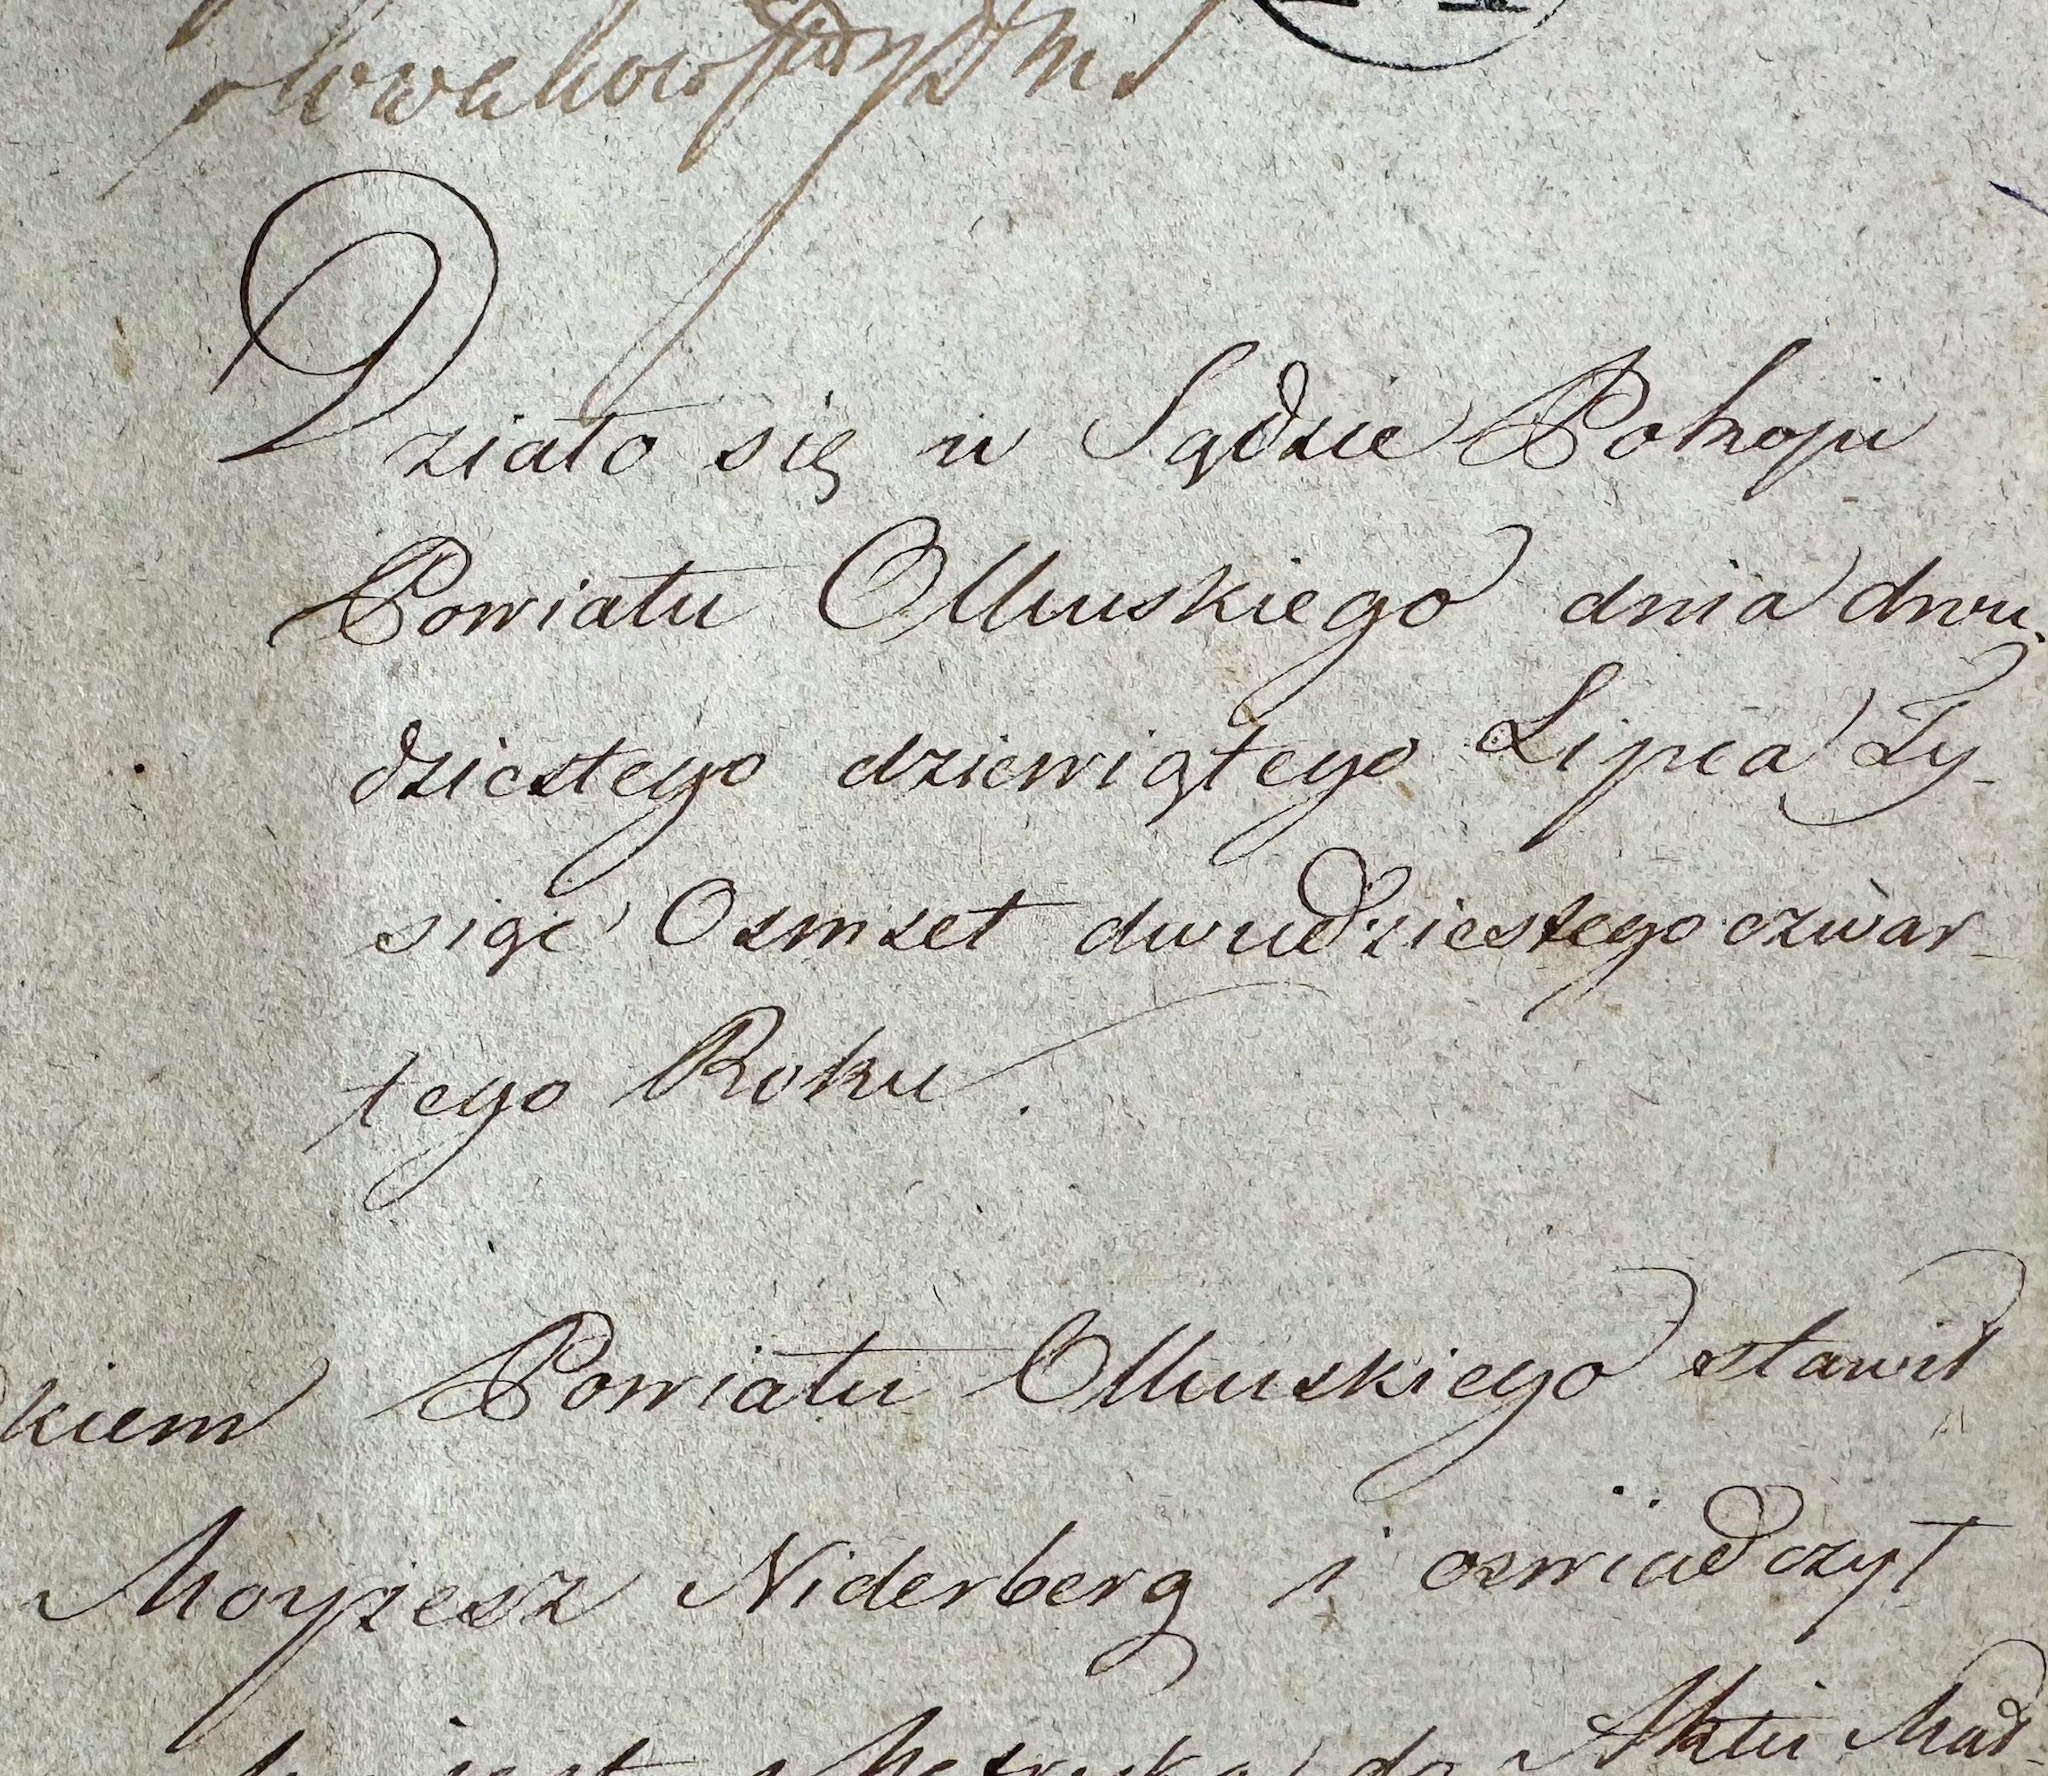 Działo się w Sądzie Pokoju
Powiatu Olkuskiego dnia dwu-
dziestego dziewiątego Lipca Ty-
siąc Osmset dwudziestego czwar-
tego Roku.
kiem Powiatu Olkuskiego stawił
Moyżesz Niderberg i oswiadczył
jest Metryka do Aktu Mał-